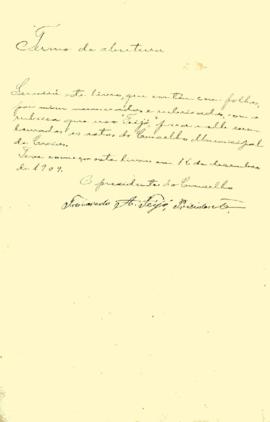 Termo de abertura
Servirá este livro, que contém cem folhas,
por mim numeradas e rubricadas, com a
rubrica que uso "Feijó", para n'elle serem
lavradas as actas do Conselho Municipal
de
Teve começo este livro em 16 de dezembro
de 1909.
O presidente do Conselho
A. Feijó, Presidente.